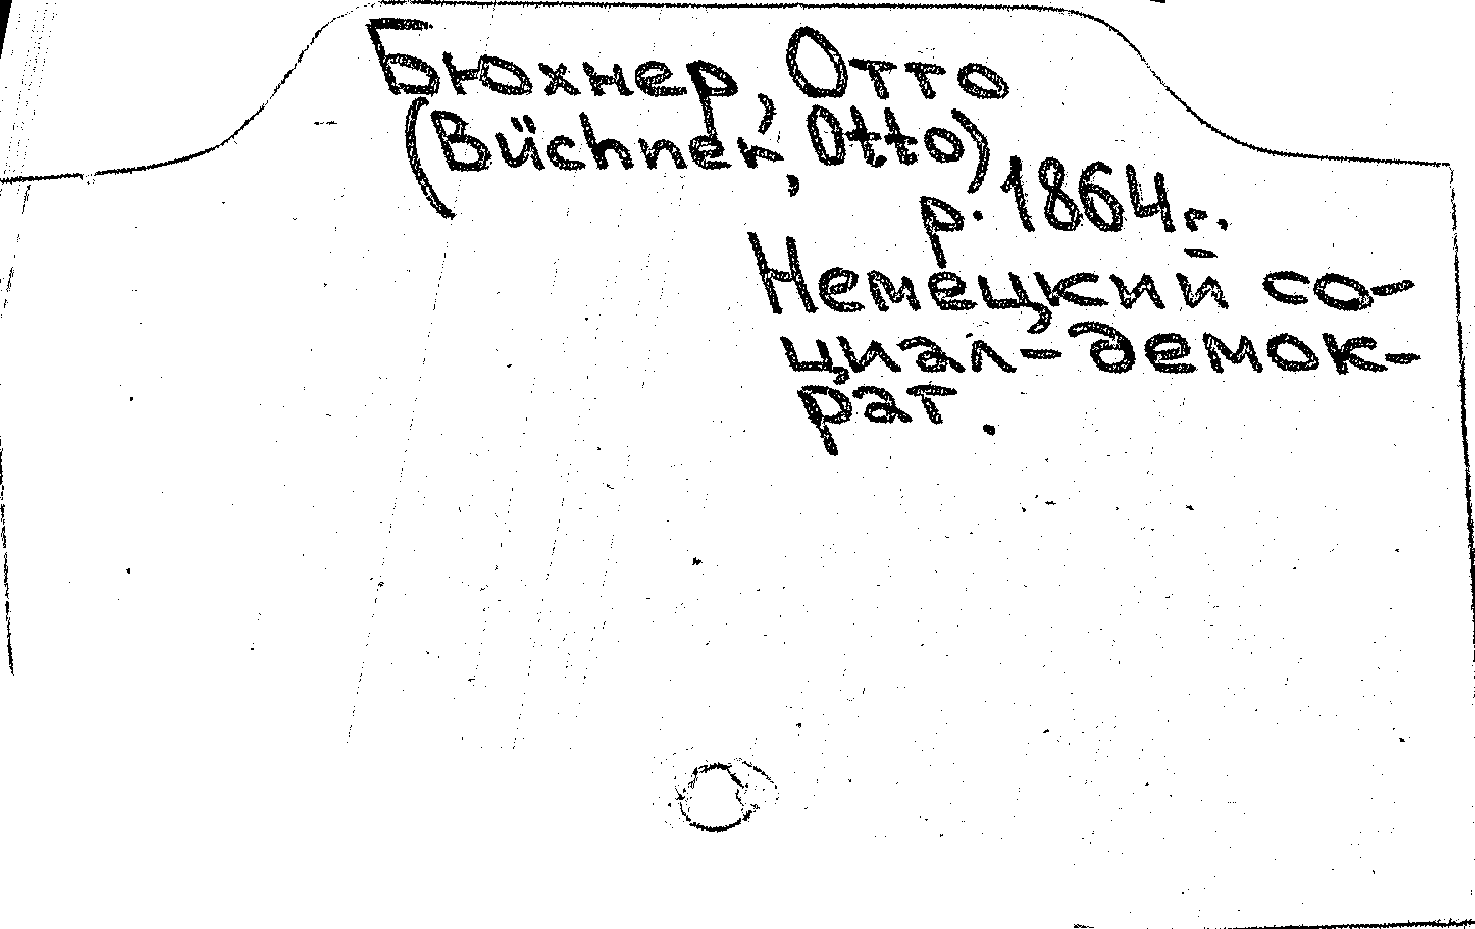 Бюхнер, Отто
(Büchner, Otto)
р. 1864 г.
Немецкий со-
циал-демок-
рат.